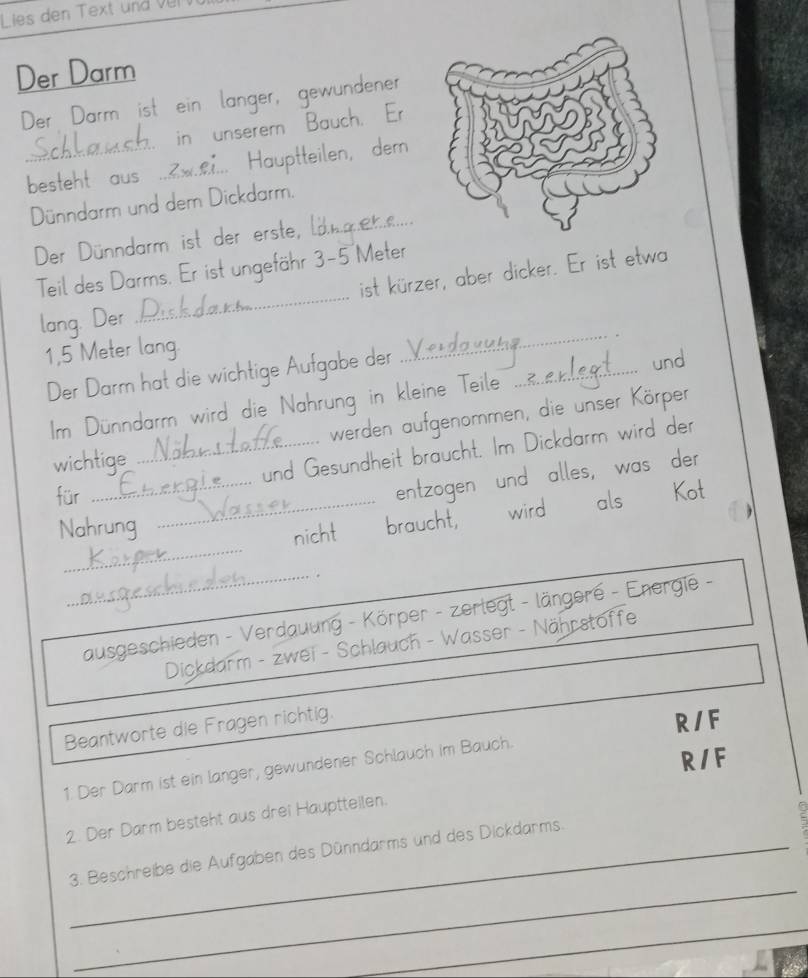 Lies den Text und
Der Darm
Der Darm ist ein langer, gewundener
Schlauch in unserem Bauch. Er
besteht aus zwei Hauptteilen, dem
Dünndarm und dem Dickdarm.
Der Dünndarm ist der erste, längere
Teil des Darms. Er ist ungefähr 3-5 Meter
lang. Der Dickdarm ist kürzer, aber dicker. Er ist etwa
1,5 Meter lang.
Der Darm hat die wichtige Aufgabe der Verdauung.
Im Dünndarm wird die Nahrung in kleine Teile zerlegt und
wichtige Nährstoffe werden aufgenommen, die unser Körper
für Energie und Gesundheit braucht. Im Dickdarm wird der
Nahrung Wasser entzogen und alles, was der
Körper nicht braucht, wird als Kot
ausgeschieden.
ausgeschieden - Verdauung - Körper - zerlegt - längere - Energie -
Dickdarm - zwei - Schlauch - Wasser - Nährstoffe
Beantworte die Fragen richtig.
1. Der Darm ist ein langer, gewundener Schlauch im Bauch. R / F
2. Der Darm besteht aus drei Hauptteilen. R / F
3. Beschreibe die Aufgaben des Dünndarms und des Dickdarms.